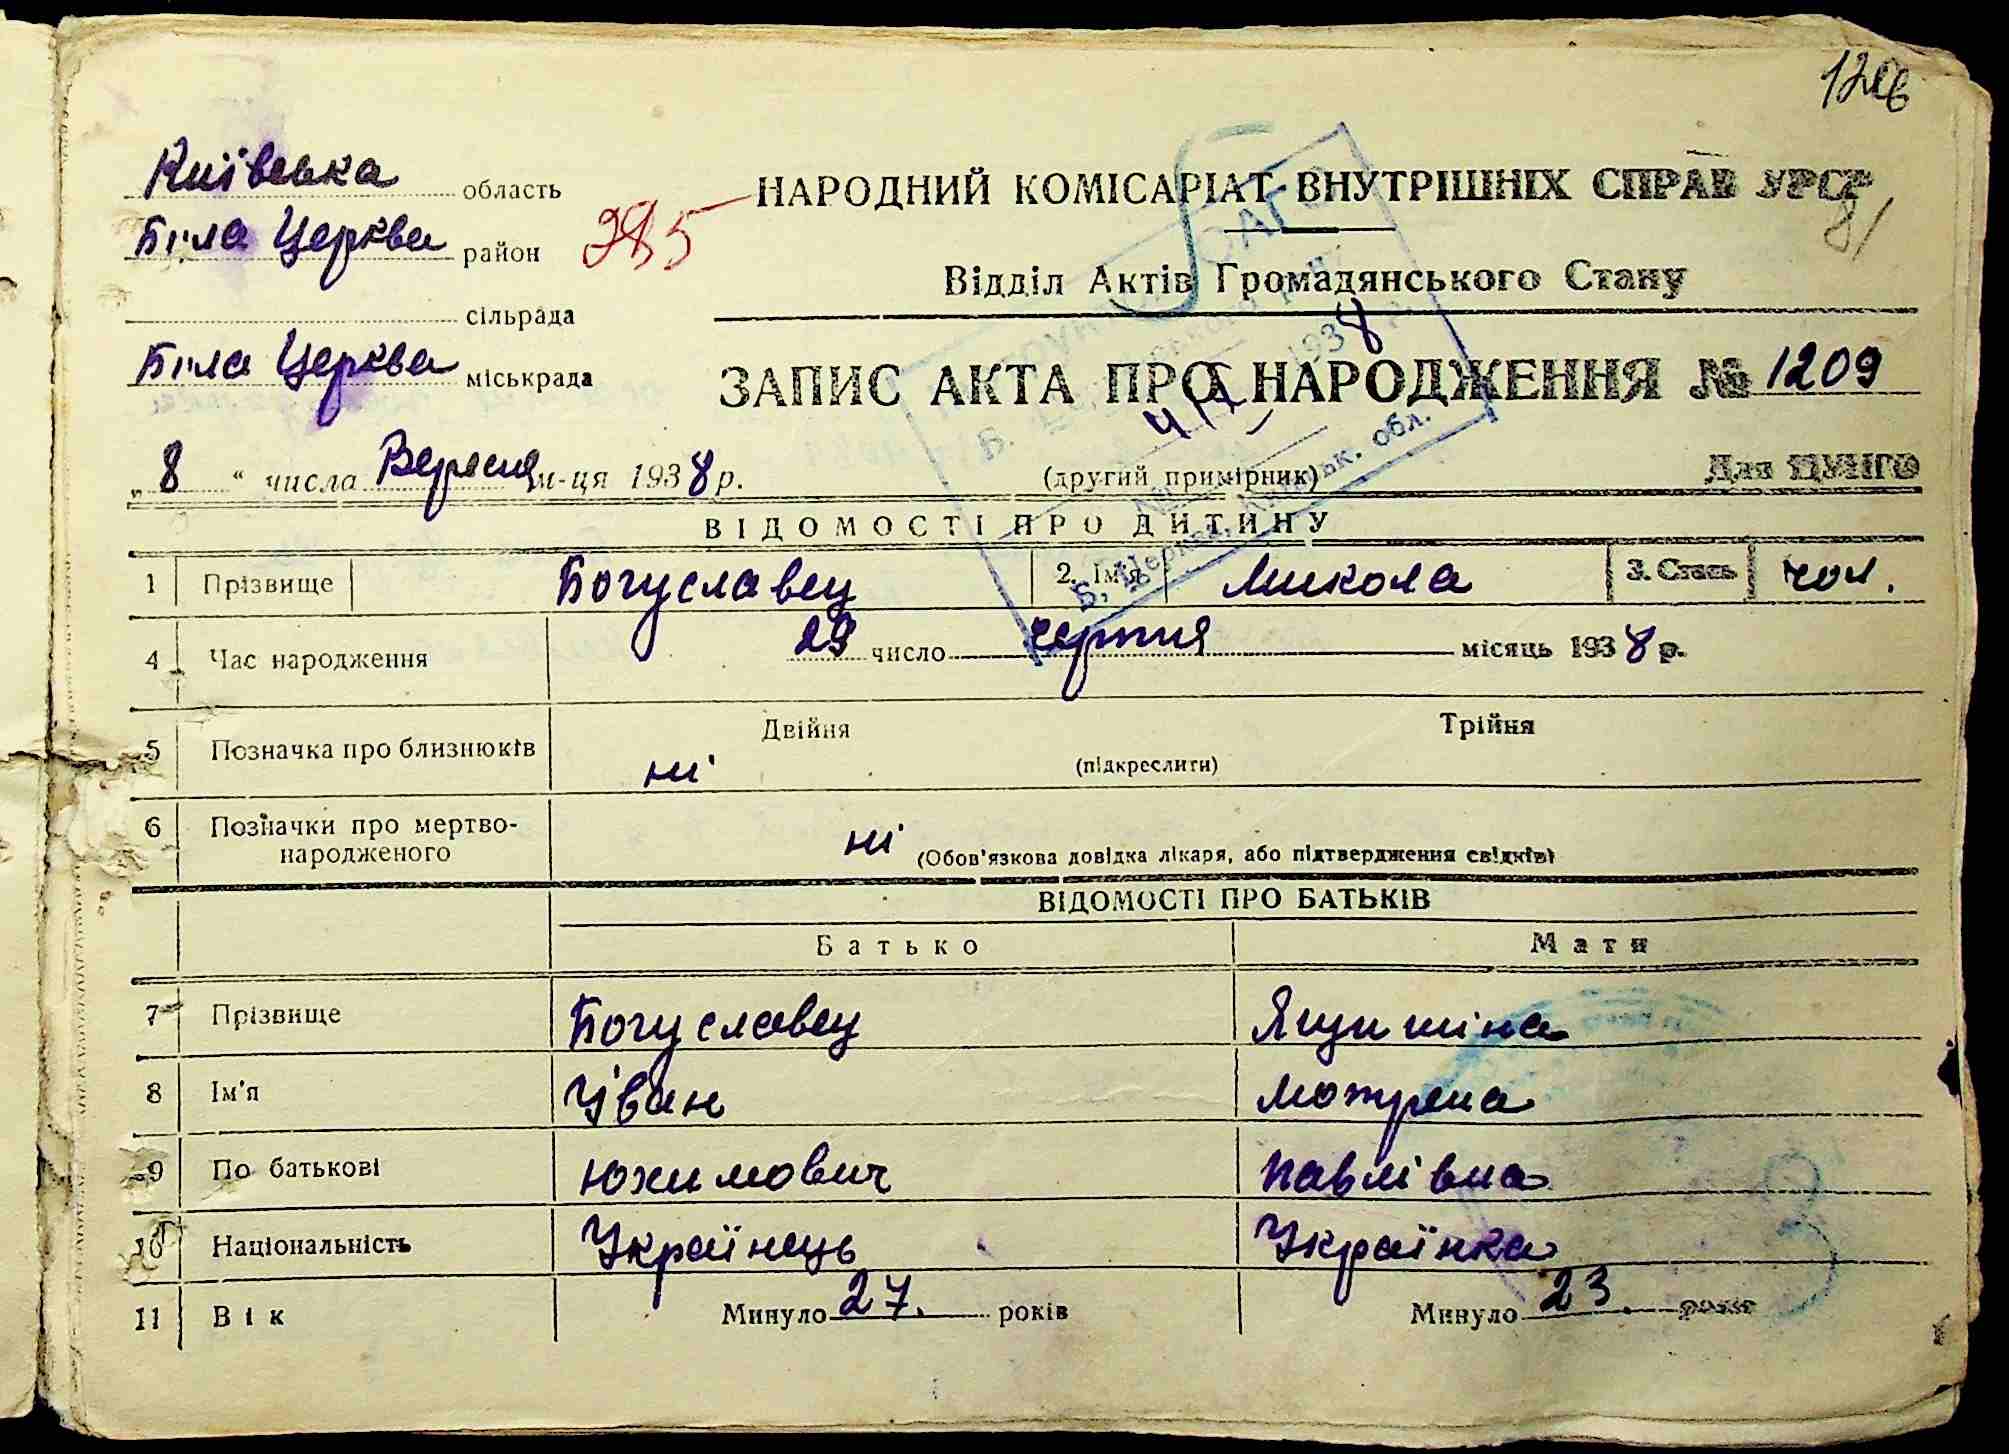 Київська область
Біла Церква район
сільрада
Біла Церква міськрада
„8“ числа Вересня м-ця 1938 р.
НАРОДНИЙ КОМІСАРІАТ ВНУТРІШНІХ СПРАВ УРСР
81
Відділ Актів Громадянського Стану
ЗАПИС АКТА ПРО НАРОДЖЕННЯ № 1209
(другий примірник)
Для ЦУНГО
ВІДОМОСТІ ПРО ДИТИНУ
1 Прізвище Богуславец 2. Ім'я Микола 3. Стать чол.
4 Час народження 29 число серпня місяць 1938 р.
5 Позначка про близнюків Двійня Трійня
ні (підкреслити)
6 Позначки про мертво-
народженого ні (Обов'язкова довідка лікаря, або підтвердження свідків)
ВІДОМОСТІ ПРО БАТЬКІВ
Батько Мати
7 Прізвище Богуславец
8 Ім'я Іван Мотрена
9 По батькові Юхимович Павлівна
10 Національність Українець Українка
11 Вік Минуло 27. років Минуло 23. років